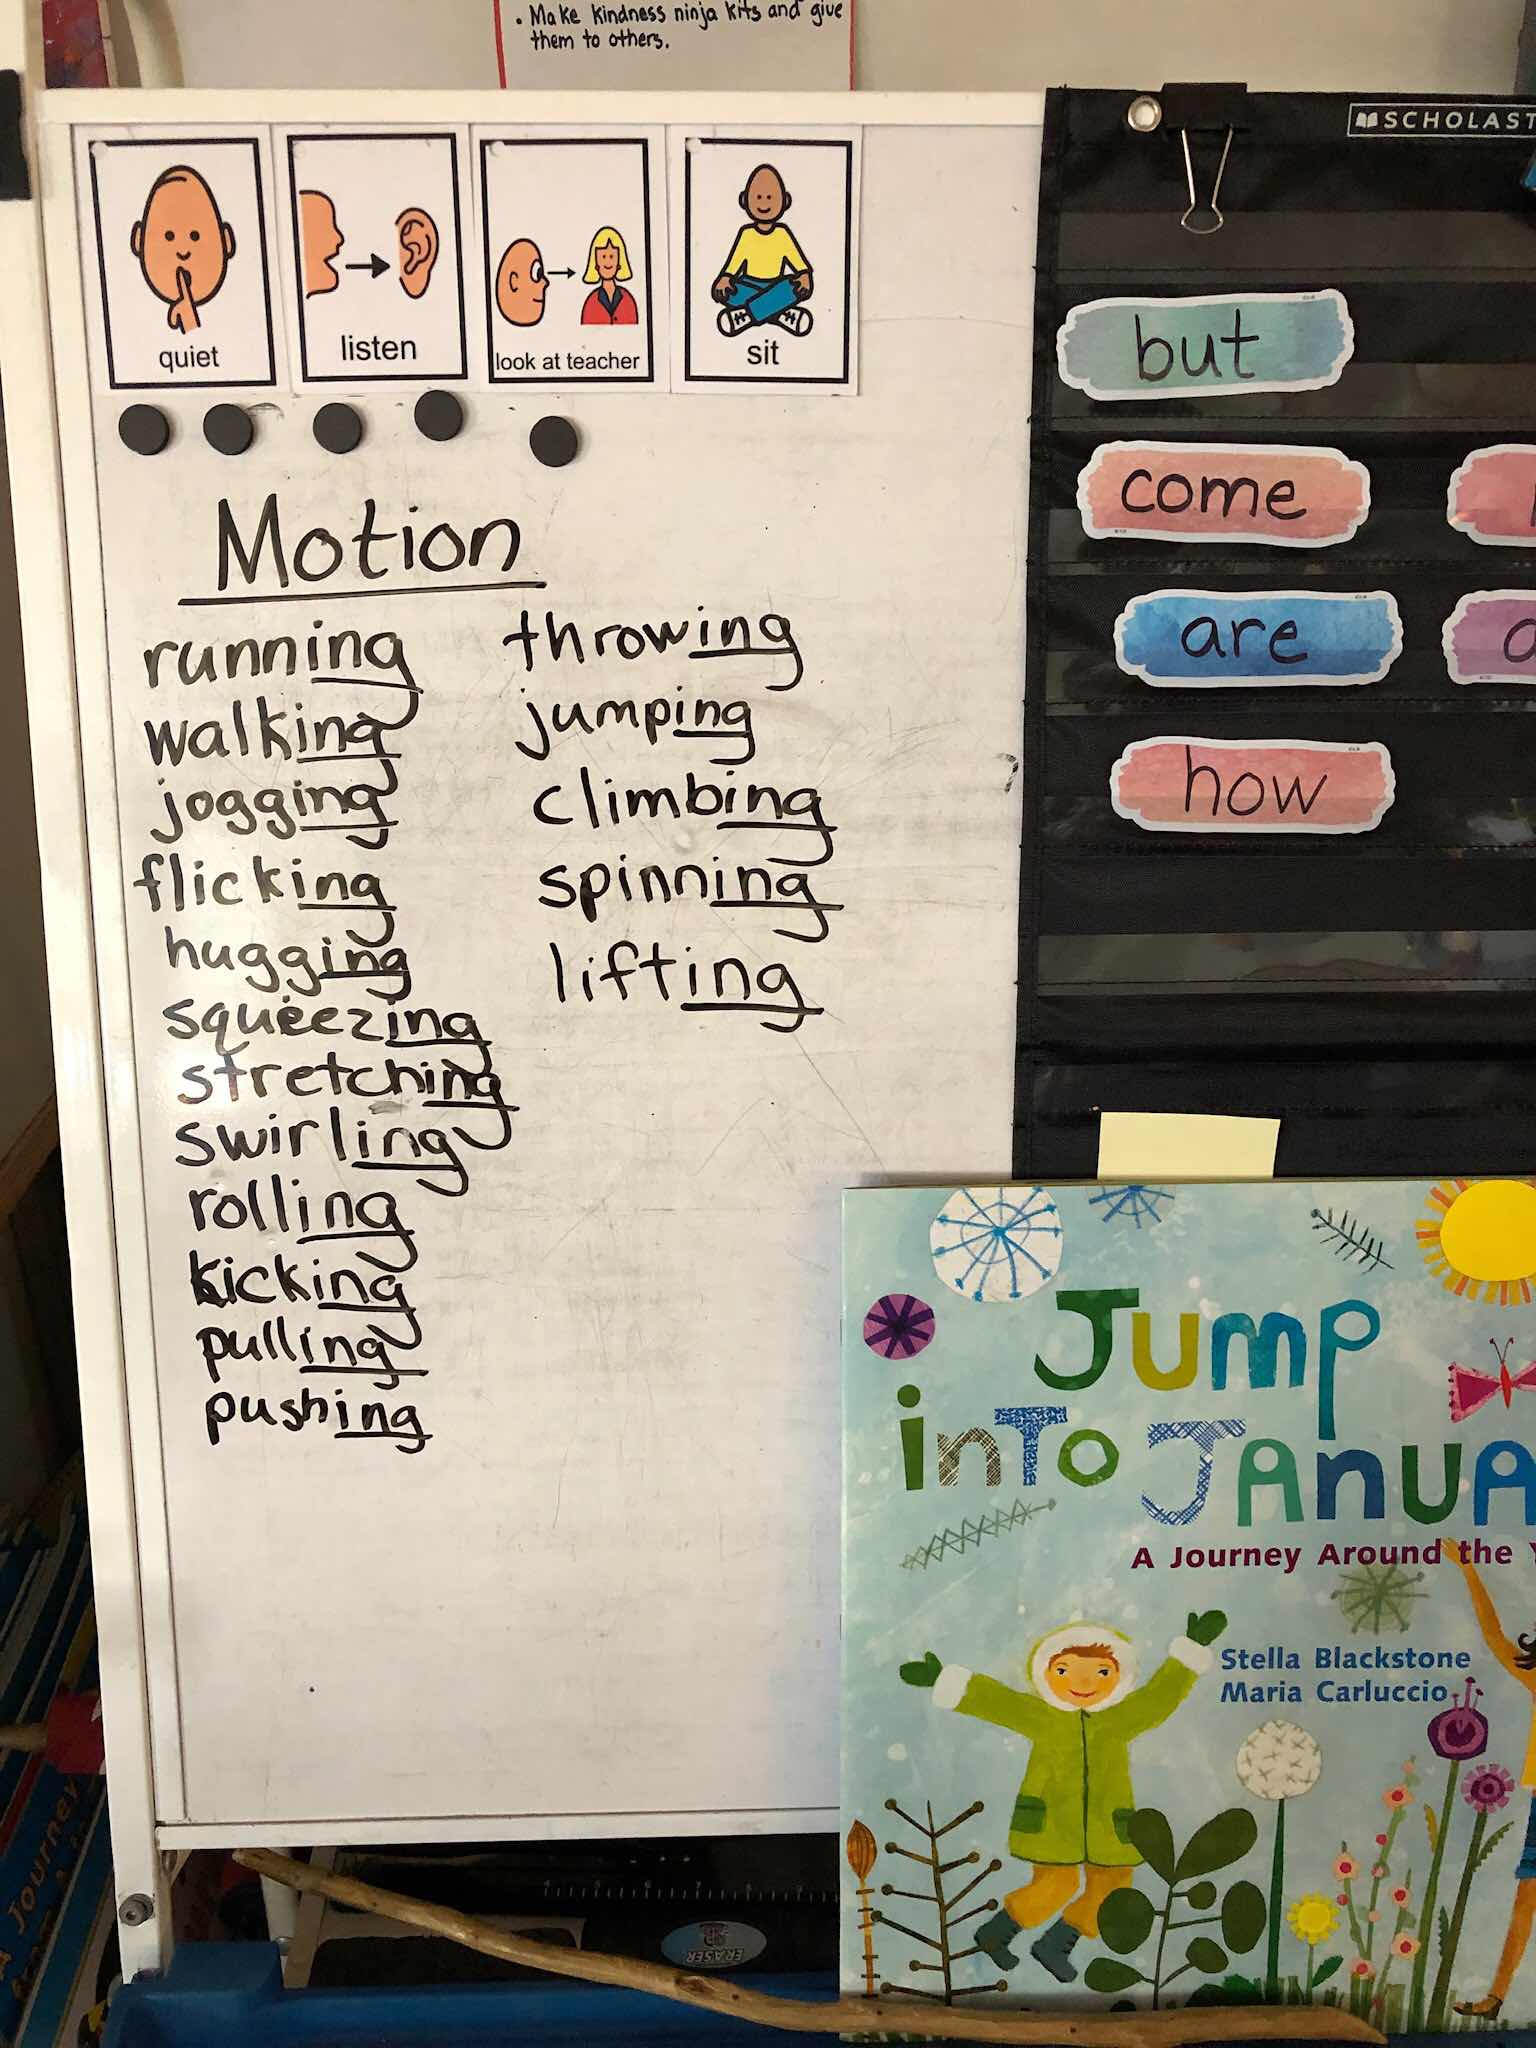 . Make kindness ninja kits and give
them to others.
SCHOLAST
quiet
listen
look at teacher
sit
Motion
running
walking
jogging
flicking
hugging
squeezing
stretching
swirling
rolling
kicking
pulling
pushing
throwing
jumping
climbing
spinning
lifting
but
come
are
how
Jump
into Janua
A Journey Around the Y
Stella Blackstone
Maria Carluccio
4 5 6 7 8 9
ERASER
Journey